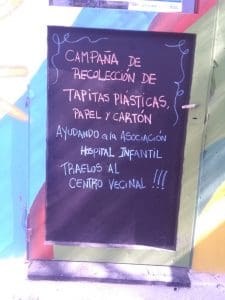 CAMPAÑA DE
RECOLECCIÓN DE
TAPITAS PLASTICAS,
PAPEL Y CARTÓN
AYUDANDO a la ASOCIACIÓN
HOSPITAL INFANTIL
TRAELOS AL
CENTRO VECINAL !!!